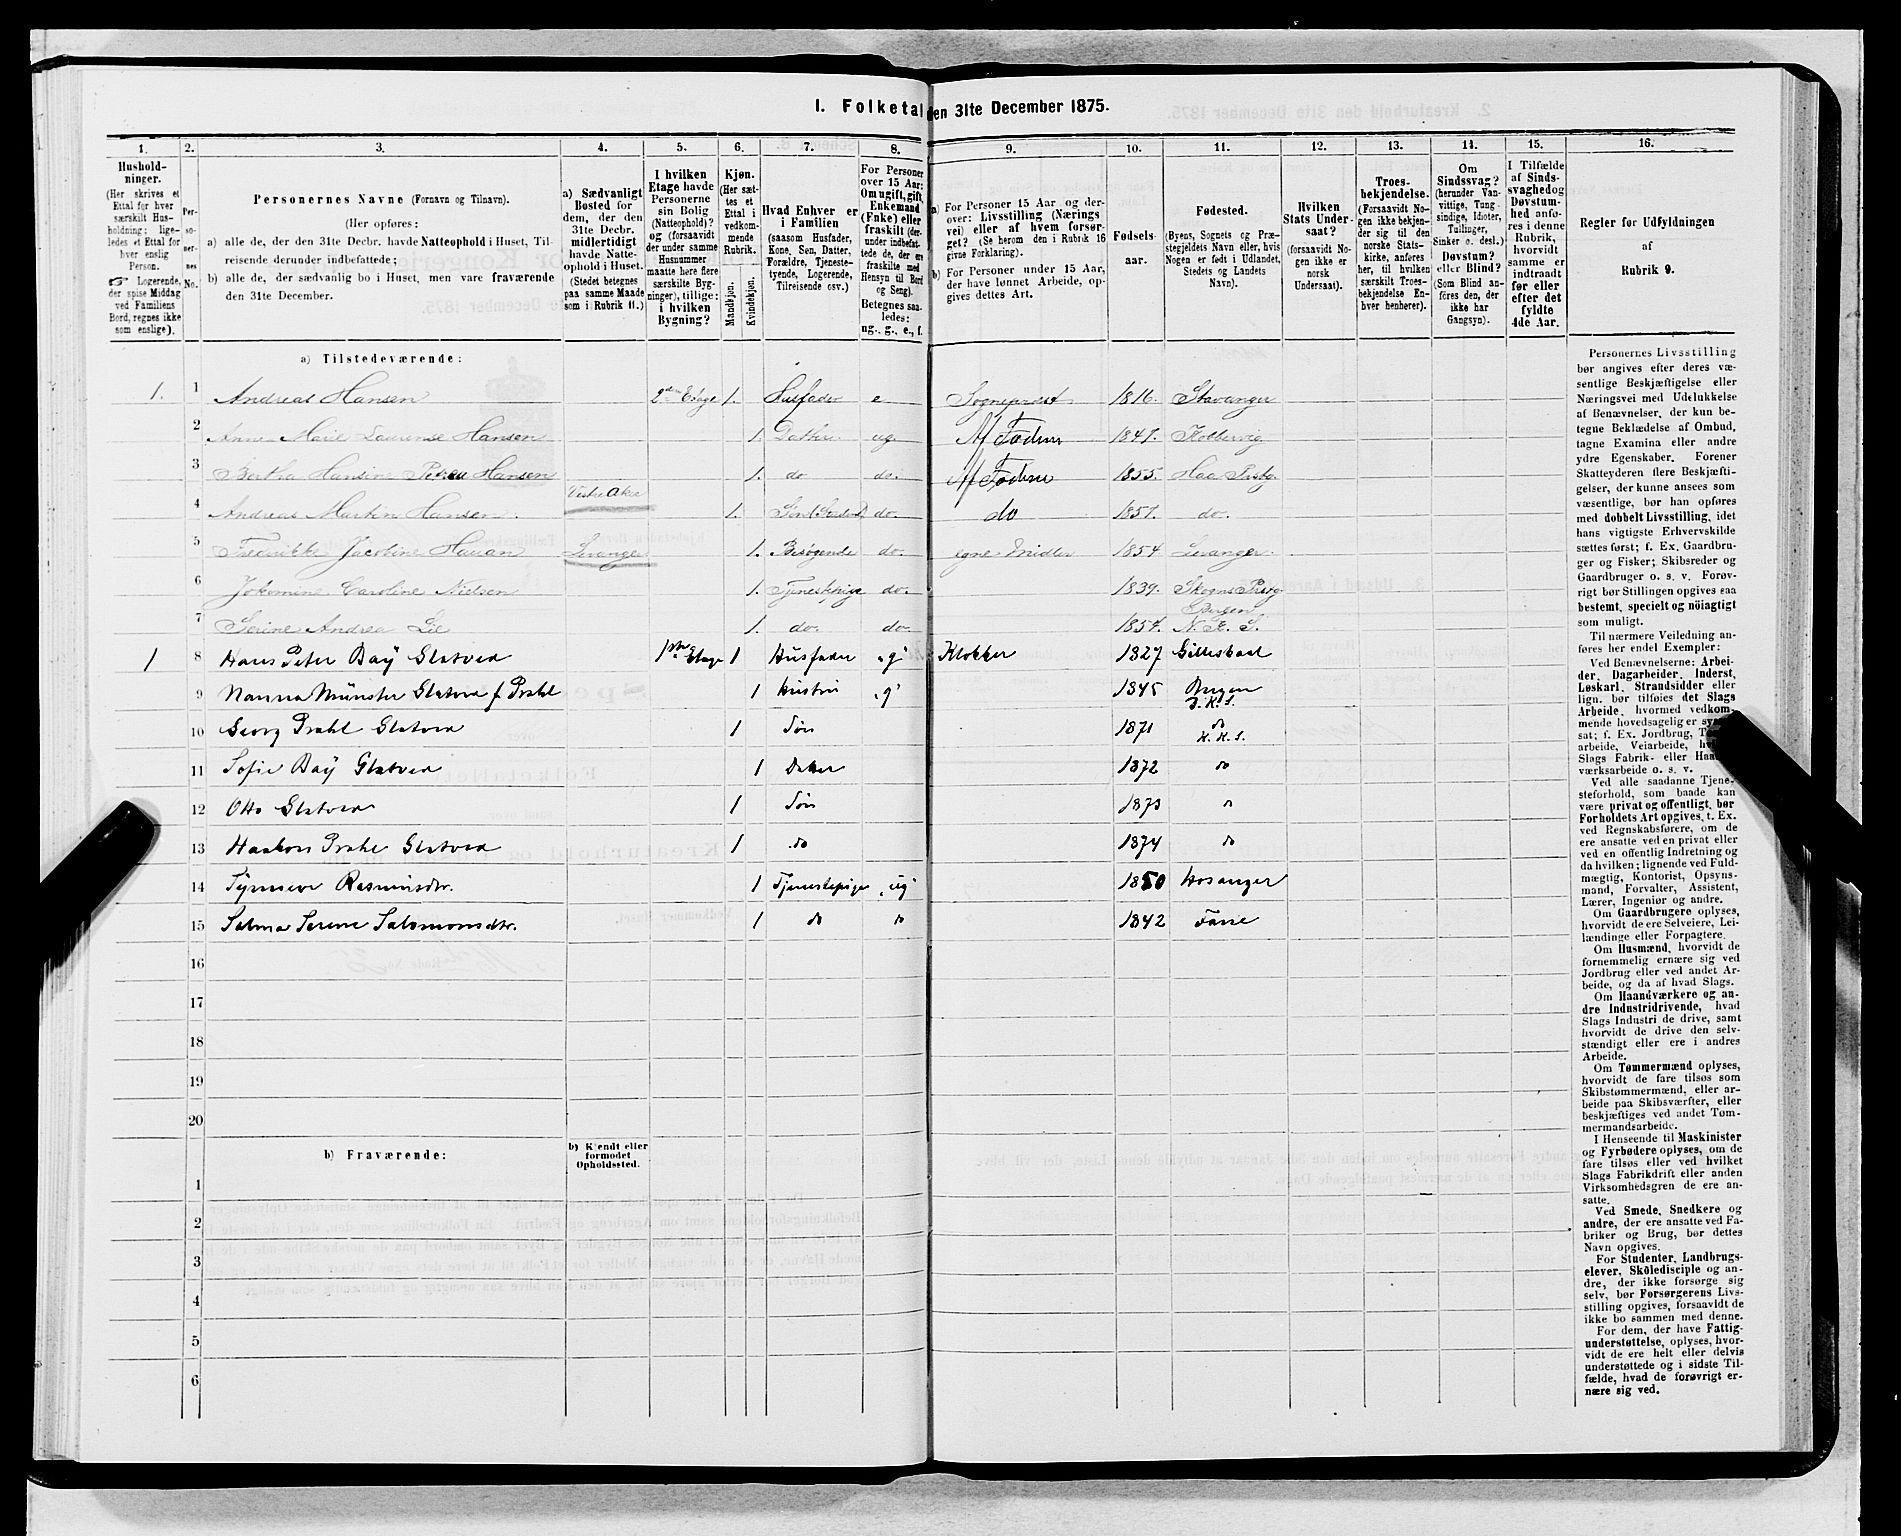 I. Folketal den 31te December 1875.
1. 2. 3. 4. 5. 6. 7. 8. 9. 10. 11. 12. 13. 14. 15. 16.
Hushold-
ninger.
(Her skrives et
Ettal for hver
særskilt Hus-
holdning; lige-
ledes et Ettal for
hver enslig
Person.
☞ Logerende,
der spise Middag
ved Familiens
Bord, regnes ikke
som enslige).
Per-
so-
ner-
nes
No.
Personernes Navne (Fornavn og Tilnavn).
(Her opføres:
a) alle de, der den 31te Decbr. havde Natteophold i Huset, Til-
reisende derunder indbefattede;
b) alle de, der sædvanlig bo i Huset, men vare fraværende
den 31te December.
a) Sædvanligt
Bosted for
dem, der den
31te Decbr.
midlertidigt
havde Natte-
ophold i Huset.
(Stedet betegnes
paa samme Maade
som i Rubrik 11.)
I hvilken
Etage havde
Personerne
sin Bolig
(Natteophold)?
og (forsaavidt
der under samme
Husnummer
maatte here flere
særskilte Byg-
ninger), tillige:
i hvilken
Bygning?
Kjøn.
(Her sæt-
tes et
Ettal i
vedkom-
mende
Rubrik.
Mandkjøn.
Kvindekjøn.
Hvad Enhver er
i Familien
(saasom Husfader,
Kone, Søn, Datter,
Forældre, Tjeneste-
tyende, Logerende,
Tilreisende osv.)
For Personer
over 15 Aar:
Om ugift, gift,
Enkemand
(Enke) eller
fraskilt (der-
under indbefat-
tede de, der ere
fraskilte med
Hensyn til Bord
og Seng).
Betegnes saa-
ledes:
ug., g., e., f.
a) For Personer 15 Aar og der-
over: Livsstilling (Nærings
vei) eller af hvem forsør-
get? (Se herom den i Rubrik 16
givne Forklaring).
b) For Personer under 15 Aar,
der have lønnet Arbeide, op-
gives dettes Art.
Fødsels-
aar.
Fødested.
(Byens, Sognets og Præ-
stegjeldets Navn eller, hvis
Nogen er født i Udlandet,
Stedets og Landets
Navn).
Hvilken
Stats Under-
saat?
(forsaavidt No-
gen ikke er
norsk
Undersaat).
Troes-
bekjendelse.
(Forsaavidt No-
gen ikke bekjen-
der sig til den
norske Stats-
kirke, anføres
her, til hvilken
særskilt Troes-
bekjendelse En-
hver henhører).
Om
Sindssvag?
(herunder Van-
vittige, Tung-
sindige, Idioter,
Tullinger,
Sinker o. desl.)
Døvstum?
eller Blind?
(Som Blind an-
føres den, der
ikke har
Gangsyn).
I Tilfælde
af Sinds-
svaghed og
Døvstum-
hed anfø-
res i denne
Rubrik,
hvorvidt
samme er
indtraadt
før eller
efter det
fyldte
4de Aar.
Regler før Udfyldningen
af
Rubrik 9.
a) Tilstedeværende:
1. 1 Andreas Hansen 2den Etage 1. Husfader e Sogneprest 1816. Stavanger
2 Anne Marie Laurense Hansen 1. Datter ug. Af Faderen 1847. Kolbervig
3 Bertha Hansine Petrea Hansen 1. do do. Af Faderen 1855. Haa Prstg.
4 Andreas Martin Hansen. Vestre Aker 1. do. do 1857. do.
5 Frederikke Jacobine Hauan Levanger 1. Besøgende do. egne Midler 1854 Levanger.
6 Jokomine Caroline Nielsen 1. Tjenestepige do. 1839. Skogns Prstg.
7 Serine Andrea Lie 1. do. do. 1854. Bergen N. K. S.
1 8 Hans Peter Bay Glatved 1ste Etage 1 Husfader "g" Klokker 1827 Gilleskaal
9 Nanna Münster Glatved f Prahl 1 Hustru "g" 1845 Bergen D. K. S.
10 Georg Prahl Glatved 1 Søn 1871 do K. K. S.
11 Sofie Bay Glatved 1 Datter 1872 do
12 Otto Glatved 1 Søn 1873 do
13 Haakon Prahl Glatved 1 do 1874 do
14 Rasmusdtr. 1 Tjenestepige "ug" 1850 Hosanger
15 Salmonsdtr. 1 do do 1842 Fane
16
17
18
19
20
b) Fraværende:
b) Kjendt eller
formodet
Opholdssted.
1
2
3
4
5
6
Personernes Livsstilling
bør angives efter deres væ-
sentlige Beskjæftigelse eller
Næringsvei med Udelukkelse
af Benævnelser, der kun be-
tegne Beklædelse af Ombud,
tagne Examina eller andre
ydre Egenskaber. Forener
Skatteyderen flere Beskjæfti-
gelser, der kunne ansees som
væsentlige, bør han opføres
med dobbelt Livsstilling, idet
hans vigtigste Erhvervskilde
sættes først; f. Ex. Gaardbru-
ger og Fisker; Skibsreder og
Gaardbruger o. s. v. Forøv-
rigt bør Stillingen opgives saa
bestemt, specielt og nöiagtigt
som muligt.
Til nærmere Veiledning an-
føres her endel Exempler:
Ved Benævnelserne: Arbei-
der, Dagarbeider, Inderst,
Løskarl, Strandsidder eller
lign. bør tilføies det Slags
Arbeide, hvormed vedkom-
mende hovedsagelig er
sat; f. Ex. Jordbrug,
arbeide, Veiarbeide,
Slags Fabrik- eller
værksarbeide o. s. v.
Ved alle saadanne Tjene-
steforhold, som baade kan
være privat og offentligt, bør
Forholdets Art opgives, t. Ex.
ved Regnskabsførere, om de
ere ansatte ved en privat eller
ved en offentlig Indretning og
da hvilken; lignende ved Fuld-
mægtig, Kontorist, Opsyns-
mand, Forvalter, Assistent,
Lærer, Ingeniør og andre.
Om Gaardbrugere oplyses,
hvorvidt de ere Selveiere, Lei-
lændinge eller Forpagtere.
Om Husmænd, hvorvidt de
fornemmelig ernære sig ved
Jordbrug eller ved andet Ar-
beide, og da af hvad Slags.
Om Haandværkere og an-
dre Industridrivende, hvad
Slags Industri de drive, samt
hvorvidt de drive den selv-
stændigt eller ere i andres
Arbeide.
Om Tømmermænd oplyses,
hvorvidt de fare tilsøs som
Skibstømmermænd, eller ar-
beide paa Skibsværfter, eller
beskjæftiges ved andet Tøm-
mermandsarbeide.
I Henseende til Maskinister
og Fyrbødere oplyses, om de
fare tilsøs eller ved hvilket
Slags Fabrikdrift eller anden
Virksomhedsgren de ere an-
satte.
Ved Smede, Snedkere og
andre, der ere ansatte ved Fa-
briker og Brug, bør dettes
Navn opgives.
For Studenter, Landbrugs-
elever, Skoledisciple og an-
dre, der ikke forsørge sig
selv, bør Forsørgerens Livs-
stilling opgives, forsaavidt de
ikke bo sammen med denne.
For dem, der have Fattig-
understøttelse, oplyses, hvor-
vidt de ere helt eller delvis
understøttede og i sidste Til-
fælde, hvad de forøvrigt er-
nære sig ved.